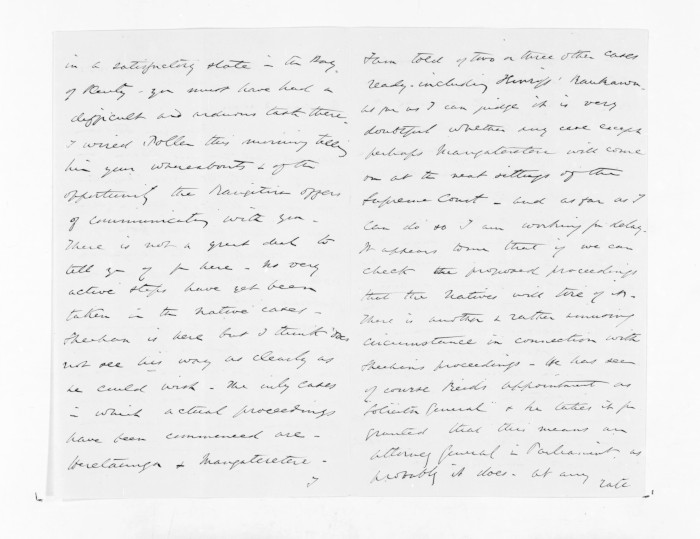 in a satisfactory state in the Bay
of Plenty - you must have had a
difficult and arduous task there.
I wired Pollen this morning telling
him your whereabouts & of the
opportunity the Rangatira offers
of communicating with you -
There is not a great deal to
tell you of from here - No very
active steps have yet been
taken in the Native cases -
Sheehan is here but I think does
not see his way as clearly as
he could wish - The only cases
in which actual proceedings
have been commenced are -
Heretaunga & Mangateretere -
I
I am told of two or three other cases
ready - including Raukawa -
as far as I can judge it is very
doubtful whether any case except
perhaps Mangateretere will come
on at the next sittings of the
Supreme Court - and as far as I
can do so I am working for delay -
It appears to me that if we can
check the proposed proceedings
that the Natives will tire of it -
There is another & rather amusing
circumstance in connection with
Sheehan's proceedings - He has seen
of course Reid's appointment as
"Solicitor General" & he takes it for
granted that this means an
attorney General in Parliament as
probably it does - at any
rate